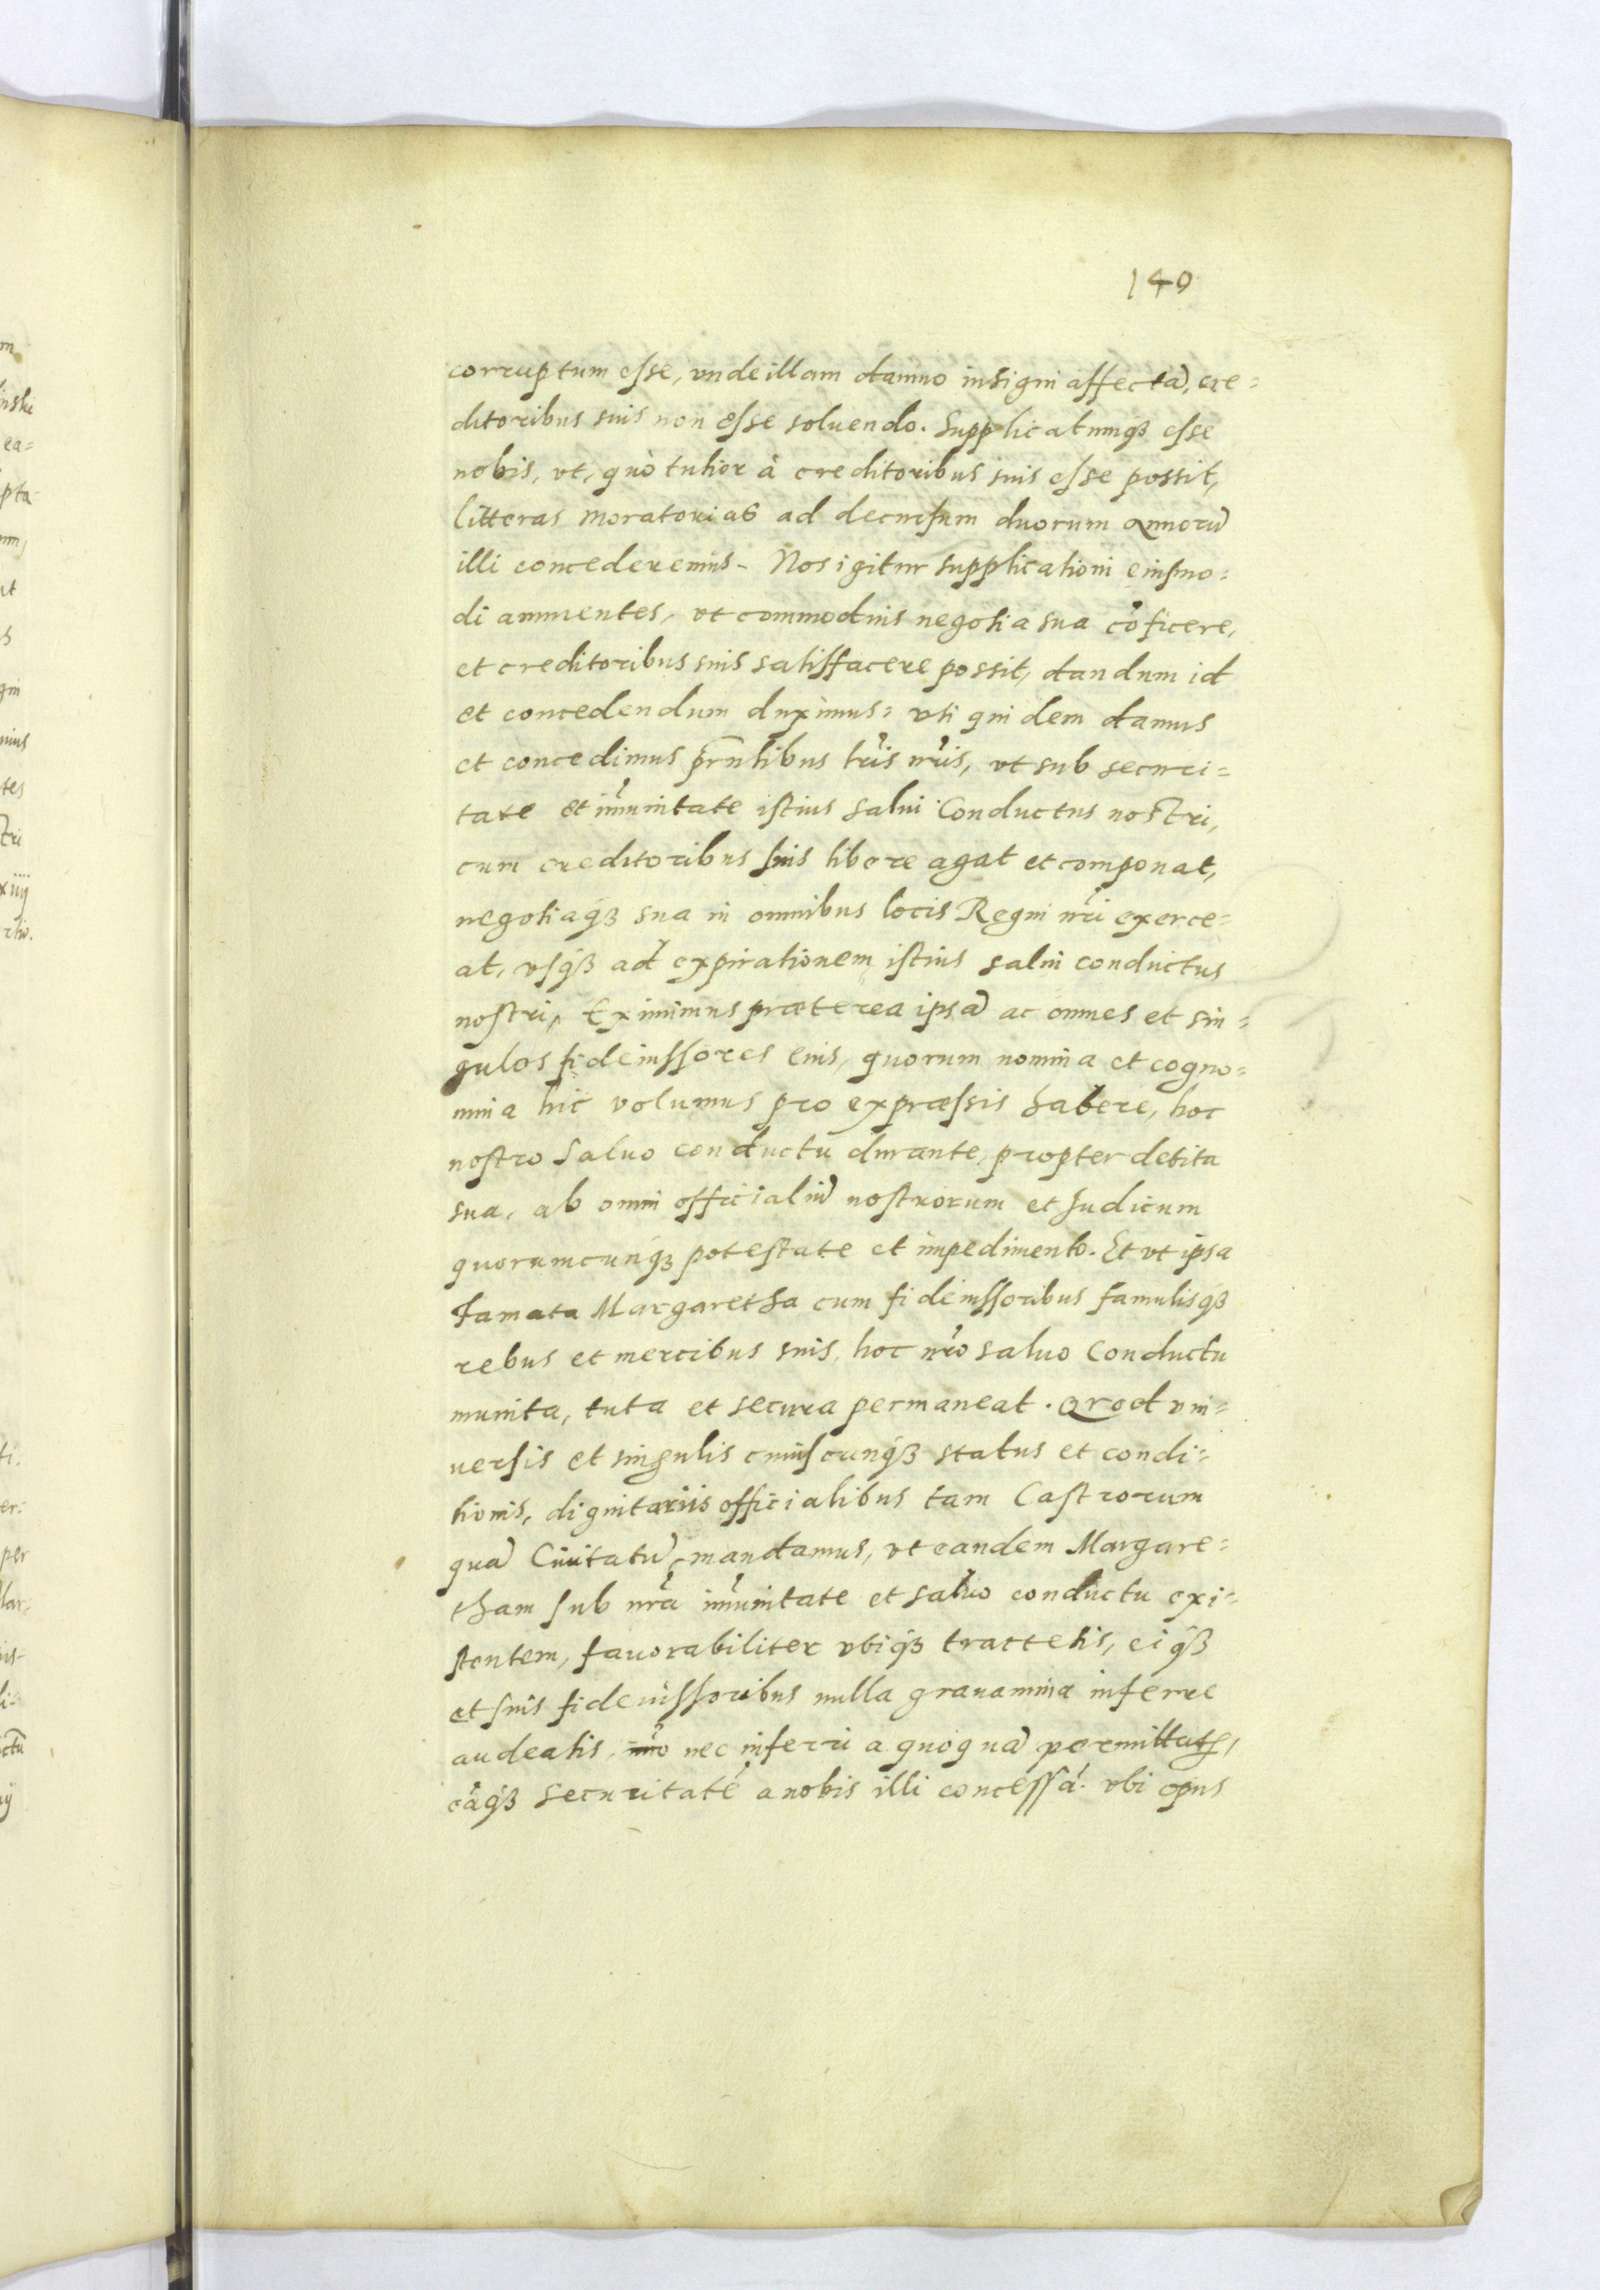 140
corruptum esse, vnde illam damno insigni affectā, cre=
ditoribus suis non esse soluendo. Supplicatumq́ꝫ esse
nobis, vt, quò tutior à creditoribus suis esse possit,
litteras moratorias ad decursum duorum annorū
illi concederemus. Nos igitur supplicationi eiusmo=
di annuentes, vt commodius negotia sua cõficere,
et creditoribus suis satisfacere possit, dandum id
et concedendum duximus: vti quidem damus
et concedimus prn̄tibus lr̃is nr̃is, vt sub securi=
tate et im̃unitate istius salui Conductus nostri,
cum creditoribus suis libere agat et componat,
negotiaq́ꝫ sua in omnibus locis Regni nr̃i exerce=
at, vsq́ꝫ ad expirationem istius salui conductus
nostri, Eximimus præterea ipsā ac omnes et sin=
gulos fideiussores eius, quorum nomina et cogno=
mina hic volumus pro expræssis habere, hoc
nostro saluo conductu durante, propter debita
sua, ab omni officialiū nostrorum et Iudicum
quorumcunq́ꝫ potestate et impedimento. Et vt ipsa
famata Margaretha cum fideiussoribus famulisq́ꝫ
rebus et mercibus suis, hoc nr̃o saluo Conductu
munita, tuta et secura permaneat. Quod vni=
uersis et singulis cuiuscunq́ꝫ status et condi=
tionis, dignitariis officialibus tam Castrorum
quā Ciuitatū, mandamus, vt eandem Margare=
tham sub nr̃a im̃unitate et saluo conductu exi=
stentem, fauorabiliter vbiq́ꝫ tractetis, eiq́ꝫ
et suis fideiussoribus nulla grauamina inferre
audeatis, nec inferri a quoquā permittatis,
eāq́ꝫ securitatē a nobis illi concessā. vbi opus